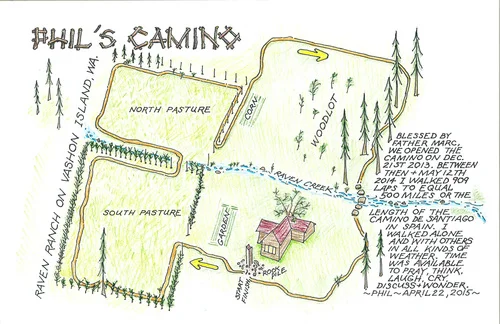 PHIL'S CAMINO
RAVEN RANCH ON VASHON ISLAND, WA.
NORTH PASTURE
CORN
WOODLOT
RAVEN CREEK
SOUTH PASTURE
GARDEN
START
FINISH
ROSIE
BLESSED BY
FATHER MARC,
WE OPENED THE
CAMINO ON DEC.
21ST 2013. BETWEEN
THEN + MAY 12TH
2014 I WALKED 909
LAPS TO EQUAL
500 MILES OR THE
LENGTH OF THE
CAMINO DE SANTIAGO
IN SPAIN. I
WALKED ALONE
AND WITH OTHERS
IN ALL KINDS OF
WEATHER. TIME
WAS AVAILABLE
TO PRAY, THINK,
LAUGH, CRY,
DISCUSS + WONDER.
~PHIL~APRIL 22, 2015~